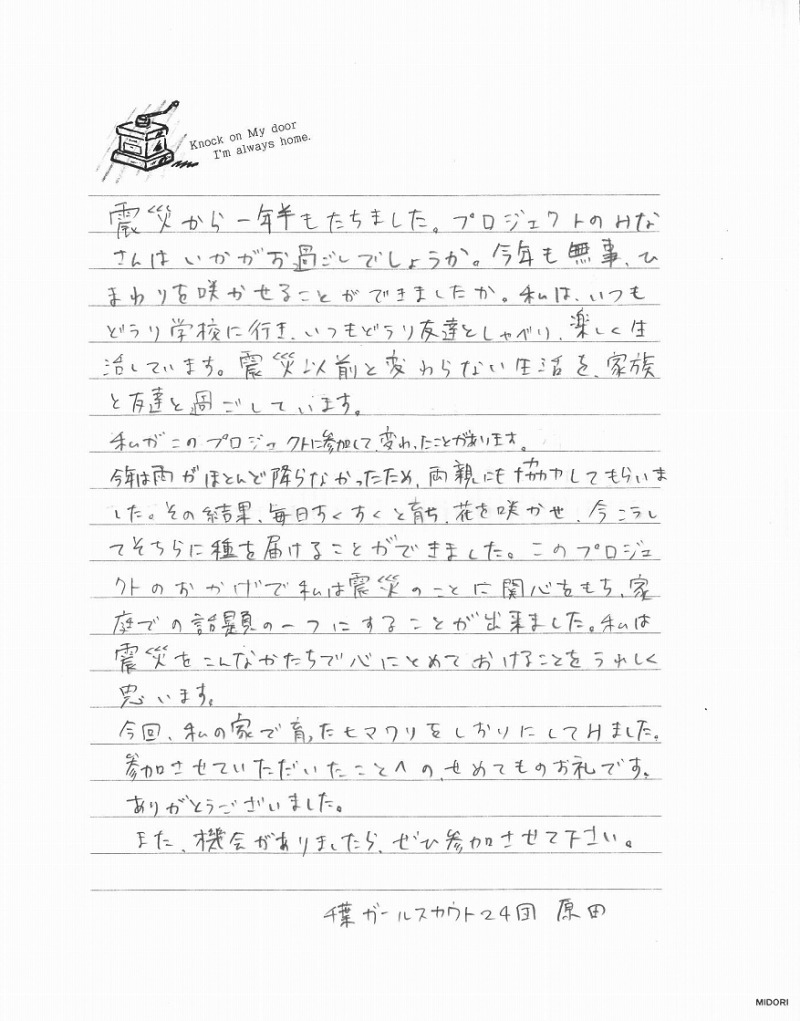 Knock on My door
I'm always home.
震災から一年半もたちました。プロジェクトのみな
さんはいかがお過ごしでしょうか。今年も無事、ひ
まわりを咲かせることができましたか。私は、いつも
どうり学校に行き、いつもどうり友達としゃべり、楽しく生
活しています。震災以前と変わらない生活を、家族
と友達と過ごしています。
私がこのプロジェクトに参加して、変わったことがあります。
今年は雨がほとんど降らなかったため、両親にも協力してもらいま
した。その結果、毎日すくすくと育ち、花を咲かせ、今こうし
てそちらに種を届けることができました。このプロジェ
クトのおかげで私は震災のことに関心をもち、家
庭での話題の一つにすることが出来ました。私は
震災をこんなかたちで心にとめておけることをうれしく
思います。
今回、私の家で育ったヒマワリをしおりにしてみました。
参加させていただいたことへの、せめてものお礼です。
ありがとうございました。
また、機会がありましたら、ぜひ参加させて下さい。
千葉ガールスカウト24団 原田
MIDORI